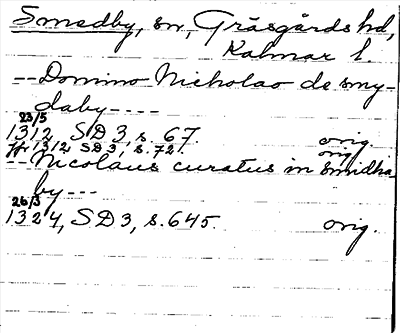 Smedby, sn, Gräsgårds hd,
Kalmar l.
--- Domino Nicholao de smy-
daby ----
23/5
1312 SD 3, s. 67. orig.
Jfr 1312 SD 3, s. 72. orig.
-- Nicolaus curatus in Smidha
by ---
26/3
1324, SD3, s. 645. orig.